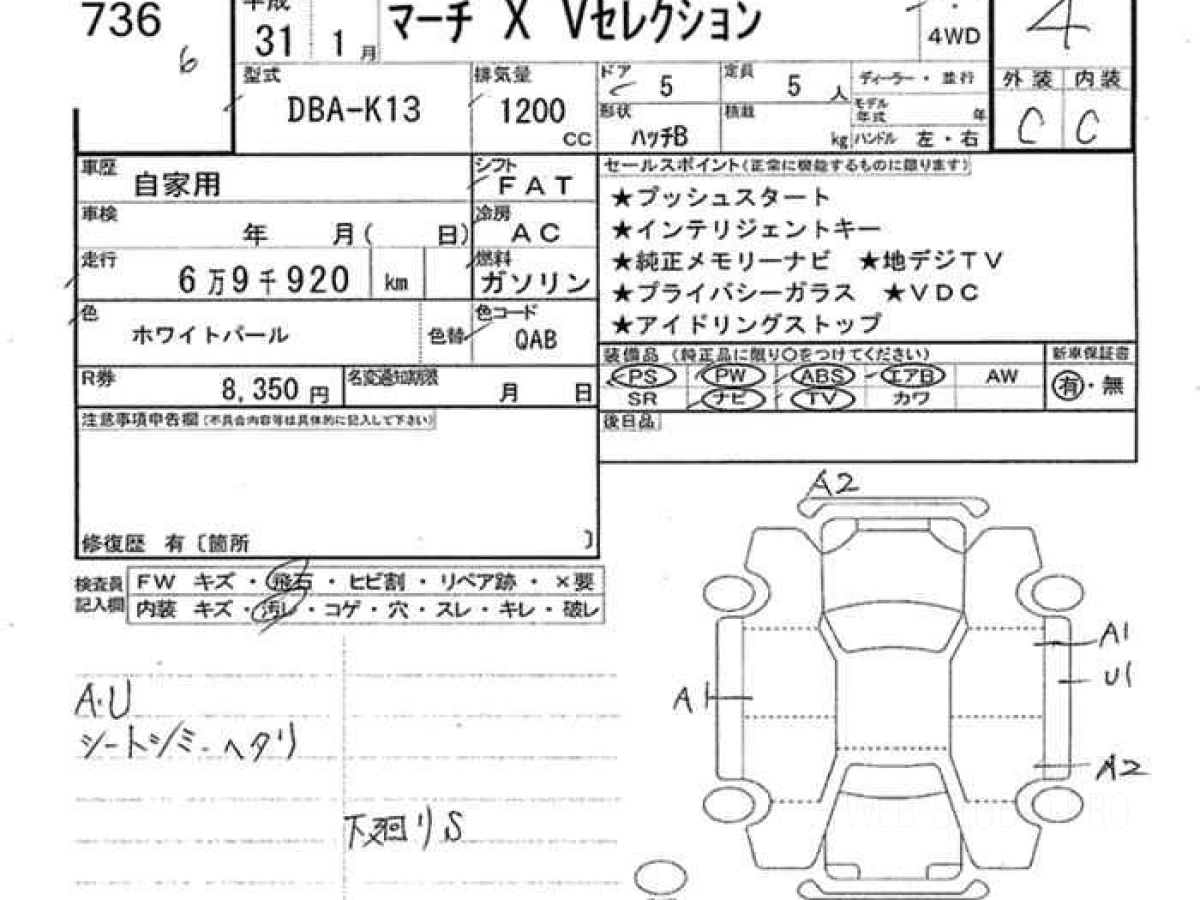 736
6
平成
31 1月
マーチ X Vセレクション
4WD
4
型式
DBA-K13
排気量
1200
CC
ドア 5
定員 5 人
形状 ハッチB
積載 kg
ディーラー・並行
モデル年式 年
ハンドル 左・右
外装 内装
C C
車歴 自家用
シフト FAT
車検 年 月( 日)
冷房 AC
走行 6万9千920 km
燃料 ガソリン
色 ホワイトパール
色替
色コード QAB
R券 8,350円
名変通知期限 月 日
セールスポイント(正常に機能するものに限ります)
★プッシュスタート
★インテリジェントキー
★純正メモリーナビ ★地デジTV
★プライバシーガラス ★VDC
★アイドリングストップ
装備品 (純正品に限り○をつけてください)
新車保証書
PS PW ABS エアB AW
有・無
SR ナビ TV カワ
後日品
注意事項申告欄(不具合内容等は具体的に記入して下さい)
修復歴 有〔箇所 〕
検査員
記入欄
FW キズ・飛石・ヒビ割・リペア跡・×要
内装 キズ・汚レ・コゲ・穴・スレ・キレ・破レ
A・U
シートシミ・ヘタリ
下廻りS
A2
A1
U1
A1
A2